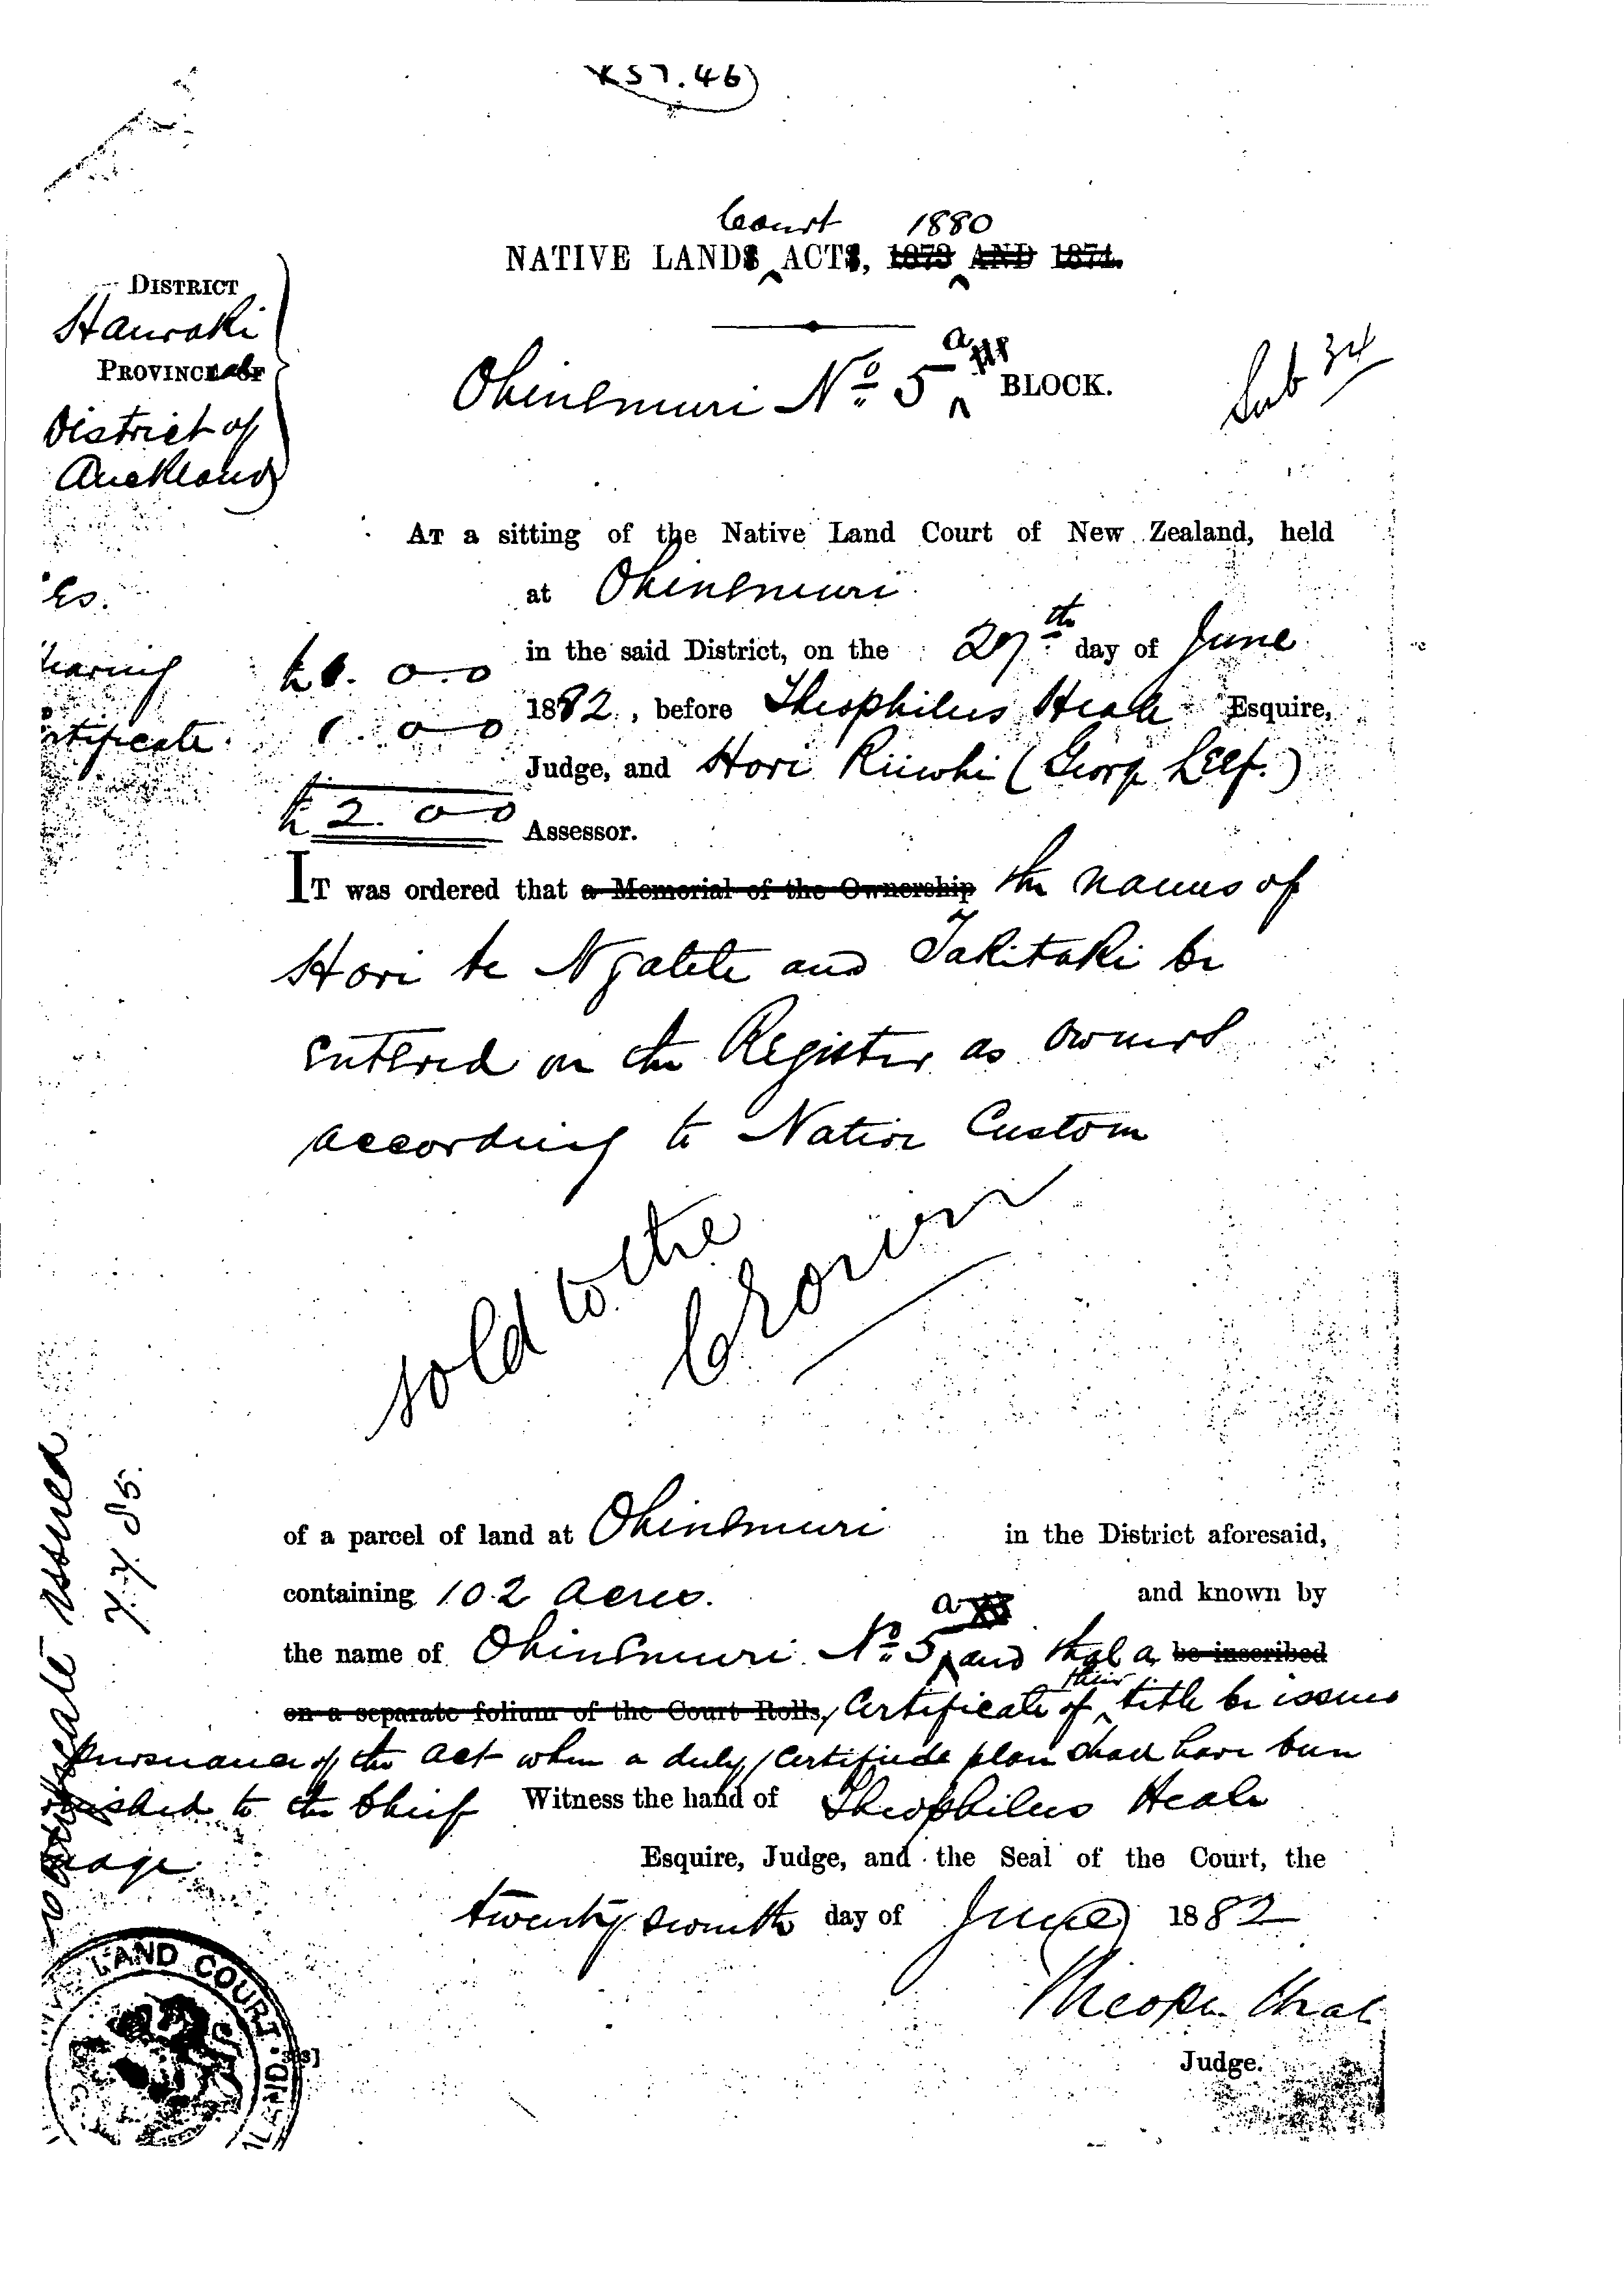 57.46
Court 1880
NATIVE LANDS ACTS, 1873 AND 1874.
DISTRICT
Hauraki
PROVINCE OF
District of
Auckland
Ohinemuri No. 5 a BLOCK.
Sub 34
AT a sitting of the Native Land Court of New Zealand, held
at Ohinemuri
in the said District, on the 27th day of June
1882, before Theophilus Heale Esquire,
Judge, and Hori Riiwhi (George Leef.)
Assessor.
es.
hearing £1. 0.0
rtificate 1. 0 0
£2. 0 0
IT was ordered that a Memorial of the Ownership the names of
Hori te Ngatete and Takitaki be
entered on the Register as owners
according to Native Custom
sold to the
Crown
of a parcel of land at Ohinemuri in the District aforesaid,
containing 102 acres. and known by
the name of Ohinemuri No. 5 a and that a be inscribed
on a separate folium of the Court Rolls, Certificate of their title be issued
pursuance of the act when a duly certified plan shall have been
to the Chief Witness the hand of Theophilus Heale
Esquire, Judge, and the Seal of the Court, the
twenty seventh day of June 1882
Judge.
issued
7.7.85.
LAND COURT